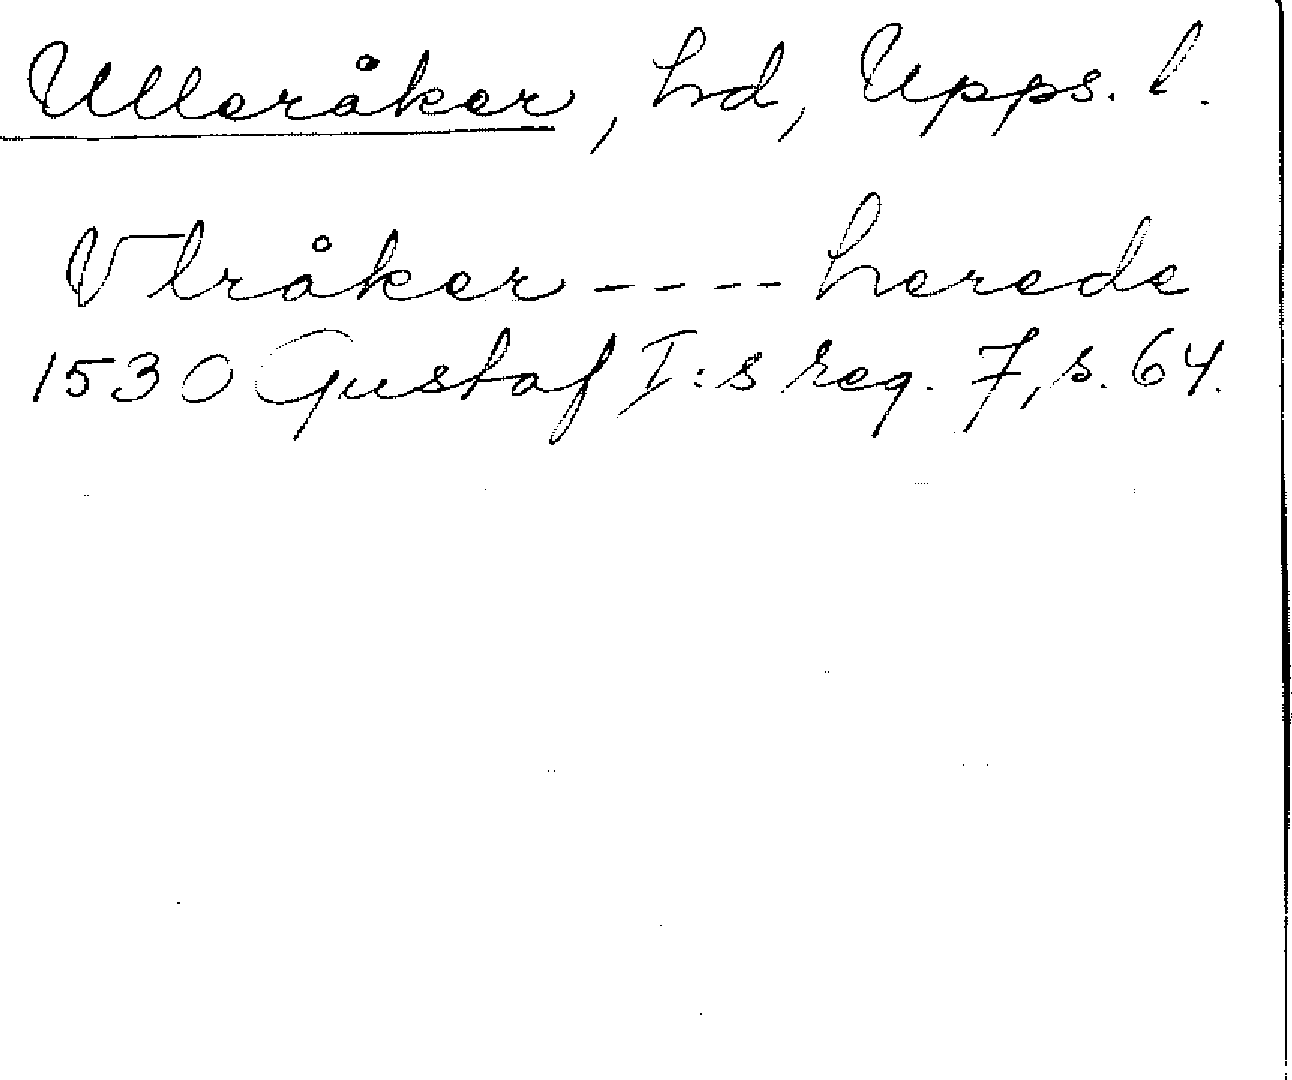 Ulleråker, hd, Upps. l.
Vlråker - - - - herede
1530 Gustaf I:s reg. 7, s. 64.